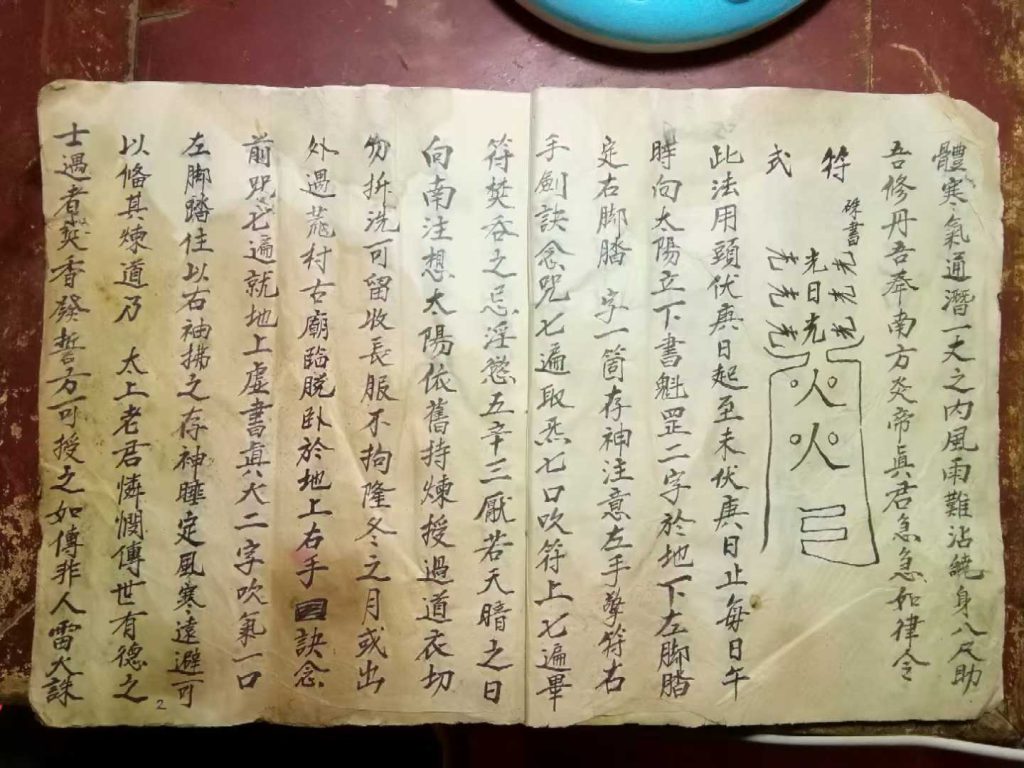 體寒氣通潛一丈之內風雨難沾繞身八尺助
吾修丹吾奉南方炎帝真君急急如律令
硃書
符式
光光光
光日光
光光光
火
火
此法用頭伏庚日起至末伏庚日止每日午
時向太陽立下書魁罡二字於地下左脚踏
定右脚踏 字一箇存神注意左手擎符右
手劍訣念咒七遍取炁七口吹符上七遍畢
符焚吞之忌淫慾五辛三厭若天暗之日
向南注想太陽依舊持煉授過道衣切
勿拆洗可留收長服不拘隆冬之月或出
外遇荒村古廟臨脱卧於地上右手 訣念
前咒七遍就地上虛書真火二字吹氣一口
左脚踏住以右袖拂之存神睡定風寒遠避可
以脩其煉道乃 太上老君憐憫傳世有德之
士遇者焚香發誓方可授之如傳非人雷火誅
2